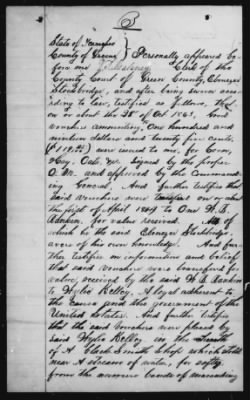 2
State of Tennessee
County of Green } Personally appeared be-
fore me Clerk of the
County Court of Green County, Ebenezer
Stockbridge, and after being sworn accor-
ding to law, testified as follows, that
on or about the 25" of Oct 1863, Good
vouchers amounting, One hundred and
nineteen dollars and twenty two cents,
($119.22) were issued to me, for Corn,
Hay, Oats, &c. signed by the proper
Q. M. and approved by the Command-
ing General. And further testifies that
said vouchers were transferred on or about
the first of April 1864 to One W. B.
Rankin, for value received. All of
which he the said Ebenezer Stockbridge,
avers of his own knowledge. And fur-
ther testifies on information and belief
that said vouchers was transferred for
value received by the said W. B. Rankin
to Wylie Kelley, A loyal adherent to
the cause and the government of the
United States. And further testifies
that the said Vouchers were placed by
said Wylie Kelley in the
of A Black Smith Shop which stood
near A stream of water, for safety
from the numerous bands of marauding